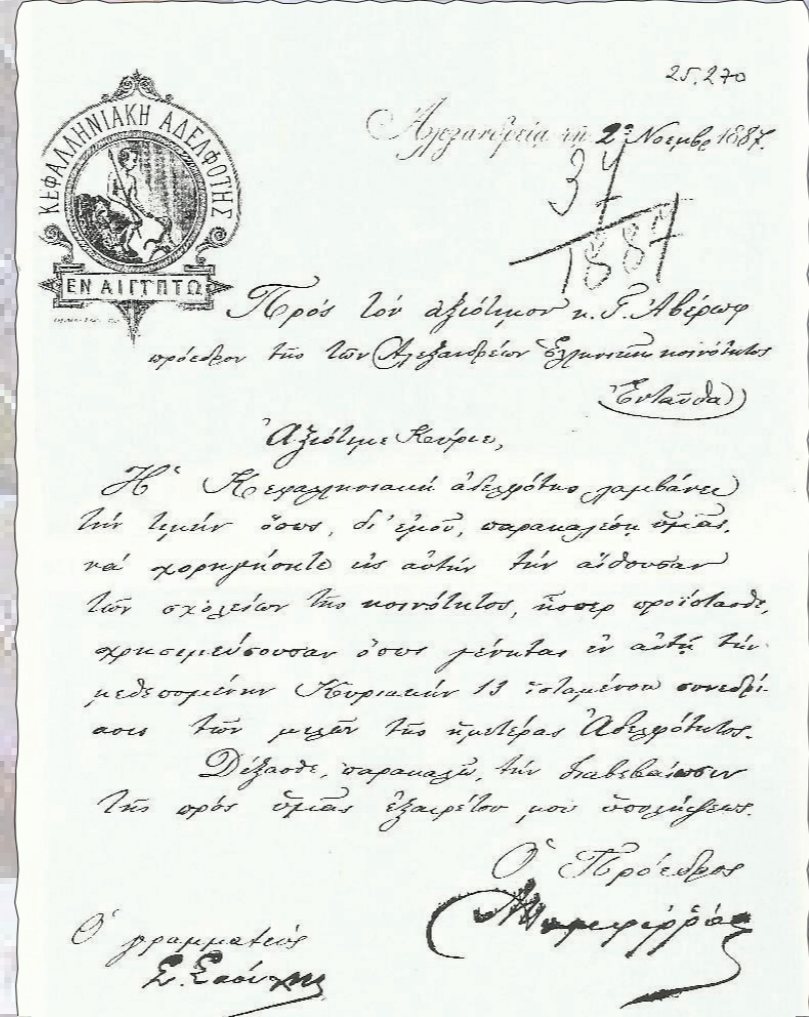 25.270
ΚΕΦΑΛΛΗΝΙΑΚΗ ΑΔΕΛΦΟΤΗΣ
ΕΝ ΑΙΓΥΠΤΩ
Ἀλεξανδρεία τῇ 2ᾳ Νοεμβρ 1887.
37
1887
Πρός τόν ἀξιότιμον κ. Γ. Ἀβέρωφ
πρόεδρον τῆς τῶν Ἀλεξανδρείων Ἑλληνικῆς κοινότητος
Ἐνταῦθα
Ἀξιότιμε Κύριε,
Ἡ Κεφαλληνιακή ἀδελφότης λαμβάνει
τήν τιμήν ὅπως, δι' ἐμοῦ, παρακαλέσῃ ὑμᾶς,
νά χορηγήσητε εἰς αὐτήν τήν αἴθουσαν
τῶν σχολείων τῆς κοινότητος, ἧσπερ προΐστασθε,
χρησιμεύσουσαν ὅπως γένηται ἐν αὐτῇ τήν
μεθεπομένην Κυριακήν 13 ἱσταμένου συνεδρί-
ασις τῶν μελῶν τῆς ἡμετέρας Ἀδελφότητος.
Δέξασθε, παρακαλῶ, τήν διαβεβαίωσιν
τῆς πρός ὑμᾶς ἐξαιρέτου μου ὑπολήψεως.
Ὁ Πρόεδρος
Ὁ γραμματεύς